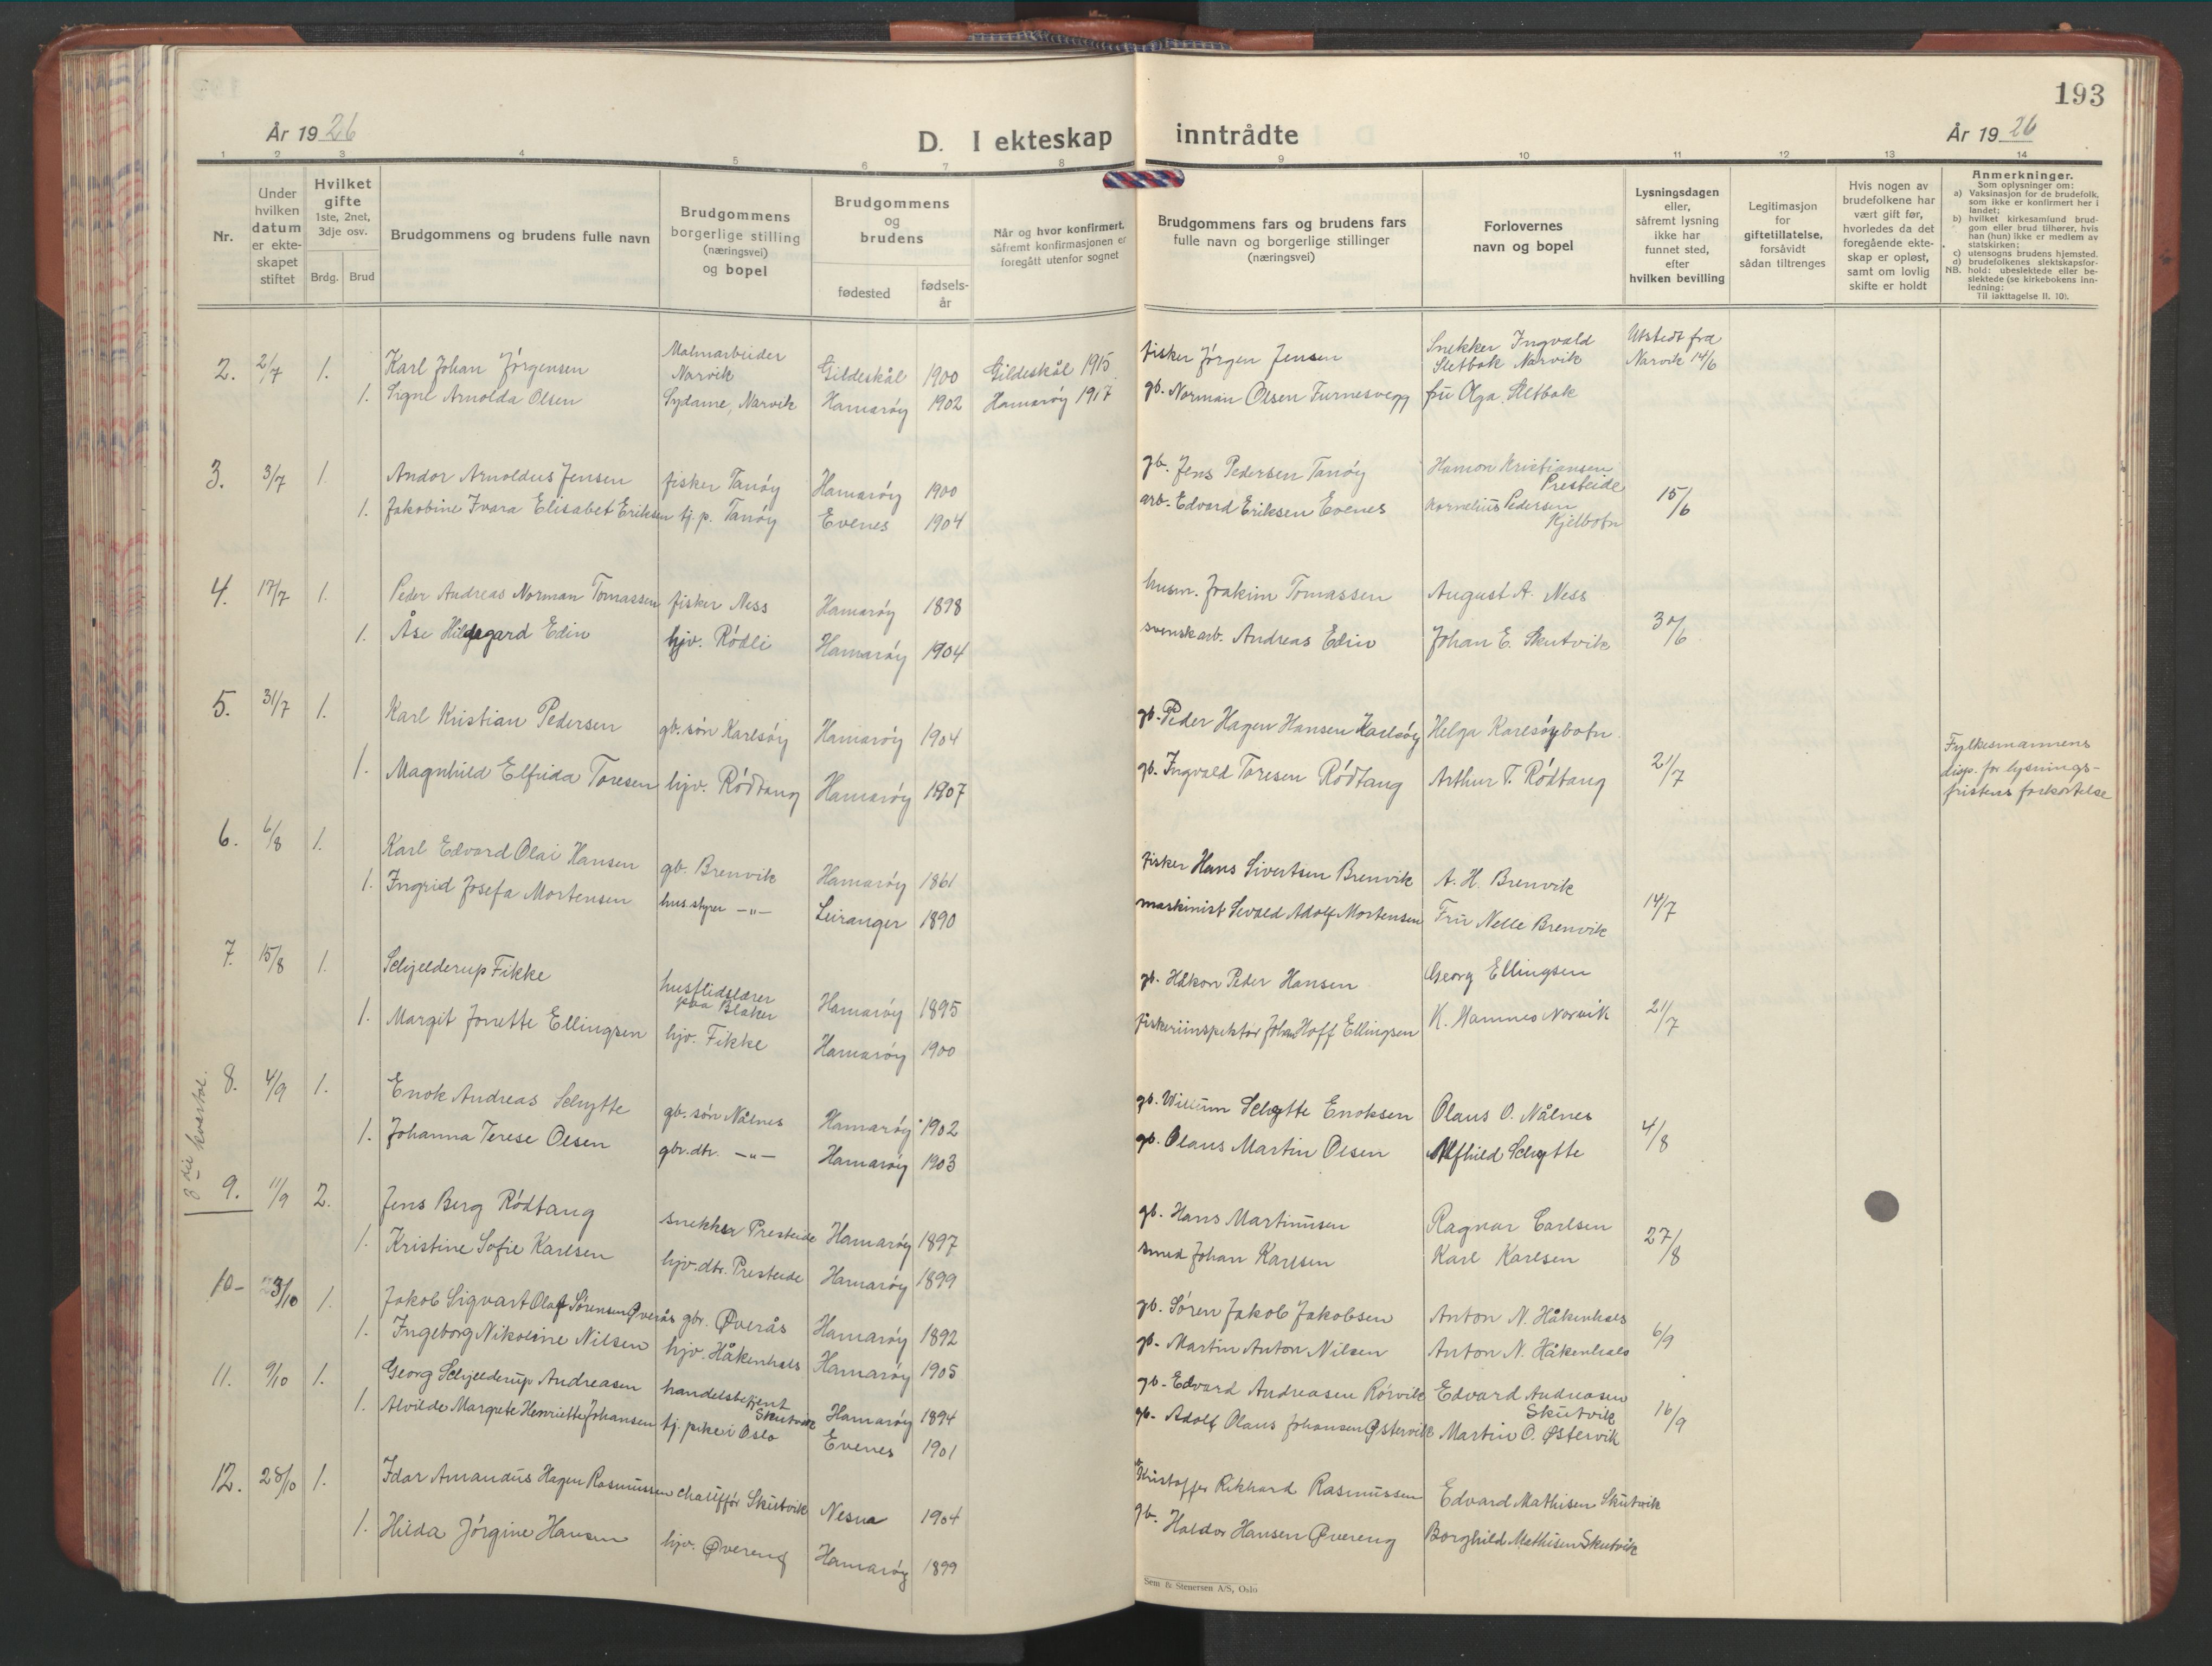 193
År 1926
D. I ekteskap inntrådte
År 1926
1 2 3 4 5 6 7 8 9 10 11 12 13 14
Nr.
Under hvilken datum er ekteskapet stiftet
Hvilket gifte 1ste, 2net, 3dje osv.
Brdg. Brud
Brudgommens og brudens fulle navn
Brudgommens borgerlige stilling (næringsvei) og bopel
Brudgommens og brudens
fødested
fødselsår
Når og hvor konfirmert, såfremt konfirmasjonen er foregått utenfor sognet
Brudgommens fars og brudens fars fulle navn og borgerlige stillinger (næringsvei)
Forlovernes navn og bopel
Lysningsdagen eller, såfremt lysning ikke har funnet sted, efter hvilken bevilling
Legitimasjon for giftetillatelse, forsåvidt sådan tiltrenges
Hvis nogen av brudefolkene har vært gift før, hvorledes da det foregående ekteskap er opløst, samt om lovlig skifte er holdt
Anmerkninger.
Som oplysninger om:
a) Vaksinasjon for de brudefolk, som ikke er konfirmert her i landet;
b) hvilket kirkesamfund brudgom eller brud tilhører, hvis han (hun) ikke er medlem av statskirken;
c) utensogns brudens hjemsted.
d) brudefolkenes slektskapsforhold: ubeslektede eller beslektede (se kirkebokens innledning:
NB. Til iakttagelse II, 10).
2. 2/7 1. Karl Johan Jörgensen Malmarbeider Narvik Gildeskål 1900 Gildeskål 1915 fisker Jörgen Jensen Snekker Ingvald Sletbak Narvik Utstedt fra Narvik 14/6
1. Signe Arnolda Olsen Sydame, Narvik Hamaröy 1902 Hamaröy 1917 gb. Norman Olsen Furnesvegg fru Olga Sletbak
3. 3/7 1. Andor Arnoldus Jensen fisker Tanöy Hamaröy 1900 gb. Jens Pedersen Tanöy Hamon Kristiansen Presteide 15/6
1. Jakobine Ivara Elisabet Eriksen tj. p. Tanöy Evenes 1904 arb. Edvard Eriksen Evenes Kornelius Pedersen Kjelbotn
4. 17/7 1. Peder Andreas Norman Tomassen fisker Ness Hamaröy 1898 husm. Joakim Tomassen August A. Ness
1. Åse Hildegard Edin hjv. Rödli Hamaröy 1904 svensk arb. Andreas Edin Johan E. Skutvik 30/6
5. 31/7 1. Karl Kristian Pedersen gb. sön Karlsöy Hamaröy 1904 gb. Peder Hagen Hansen Karlsöy Helga Karlsöybotn
1. Magnhild Elfrida Toresen hjv. Rödtang Hamaröy 1907 gb. Ingvald Toresen Rödtang Arthur T. Rödtang 21/7 Fylkesmannens disp. for lysningsfristens forkortelse
6. 6/8 1. Karl Edvard Olai Hansen gb. Brenvik Hamaröy 1861 fisker Hans Sivertsen Brenvik A. H. Brenvik
1. Ingrid Josefa Mortensen hus.styrer —"— Leiranger 1890 maskinist Sevald Adolf Mortensen Fru Nelle Brenvik 14/7
7. 15/8 1. Schjelderup Fikke husflidslærer paa Blaker Hamaröy 1895 gb. Håkon Peder Hansen Georg Ellingsen
1. Margit Jonette Ellingsen hjv. Fikke Hamaröy 1900 fiskeriinspektør Johan Hoff Ellingsen K. Hamnes Narvik 21/7
8. 4/9 1. Enok Andreas Schytte gb. sön Nålnes Hamaröy 1902 gb. Willum Schytte Enoksen Olaus O. Nålnes
1. Johanna Terese Olsen gbr. dtr. —"— Hamaröy 1903 gb. Olaus Martin Olsen Alfhild Schytte 4/8
3die kvartal.
9. 11/9 2. Jens Berg Rödtang snekker Presteide Hamaröy 1897 gb. Hans Martinusen Ragnar Carlsen 27/8
1. Kristine Sofie Karlsen hjv. dtr. Presteide Hamaröy 1899 smed Johan Karlsen Karl Karlsen
10- 23/10 1. Jakob Sigvart Olaf Sørensen Øverås gbr. Øverås Hamaröy 1892 gb. Sören Jakob Jakobsen Anton N. Håkenhals
1. Ingeborg Nikoline Nilsen hjv. Håkenhals Hamaröy 1905 gb. Martin Anton Nilsen Anton N. Håkenhals 6/9
11. 9/10 1. Georg Schjelderup Andreasen handelsbetjent Skutvik Hamaröy 1894 gb. Edvard Andreasen Rörvik Edvard Andreasen Skutvik 16/9
1. Alvilde Margrete Henriette Johansen tj. pike i Oslo Evenes 1901 gb. Adolf Olaus Johansen Østervik Martin O. Østervik
12. 28/10 1. Idar Amandus Hagen Rasmussen chauffør Skutvik Nesna 1904 Kristoffer Rikhard Rasmussen Edvard Mathisen Skutvik
1. Hilda Jörgine Hansen hjv. Øvereng Hamaröy 1899 gb. Haldor Hansen Øvereng Borghild Mathisen Skutvik
Sem & Stenersen A/S, Oslo